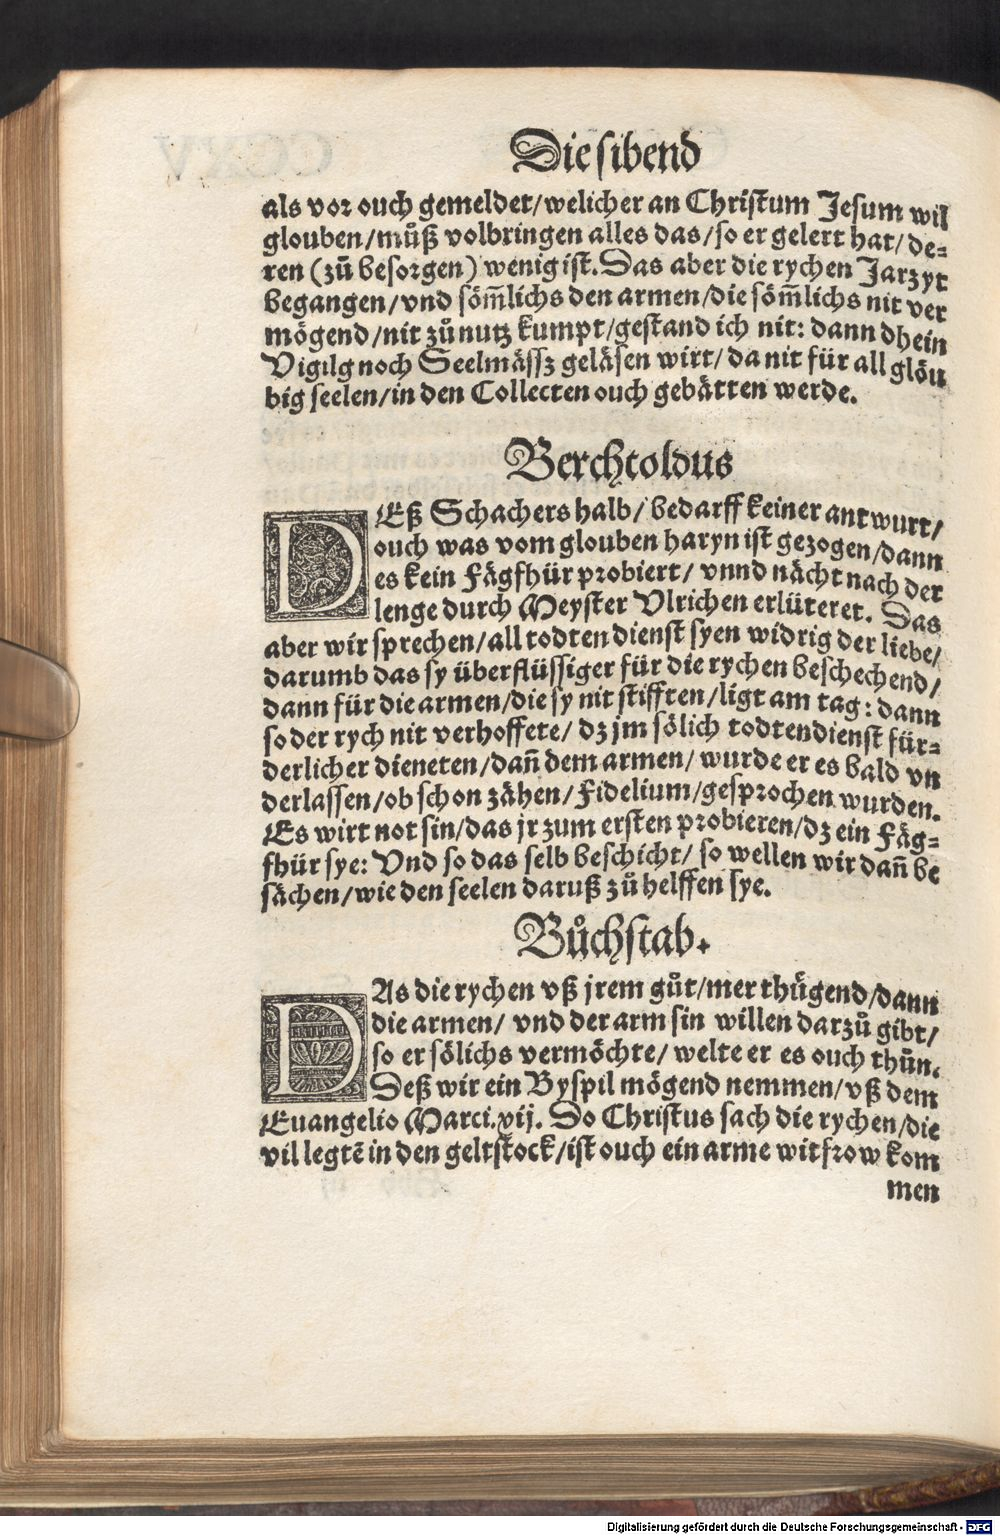 Die sibend
als vor ouch gemeldet/welicher an Christum Jesum wil
glouben/můß volbringen alles das/so er gelert hat/de-
ren (zů besorgen) wenig ist. Das aber die rychen Jarzyt
begangen/vnd söm̃lichs den armen/die söm̃lichs nit ver
mögend/nit zů nutz kumpt/gestand ich nit: dann dhein
Vigilg noch Seelmässz geläsen wirt/da nit für all glöu
big seelen/in den Collecten ouch gebätten werde.
Berchtoldus
DEß Schachers halb/bedarff keiner antwurt/
ouch was vom glouben haryn ist gezogen/dann
es kein Fägfhür probiert/vnnd nächt nach der
lenge durch Meyster Vlrichen erlüteret. Das
aber wir sprechen/all todten dienst syen widrig der liebe/
darumb das sy überflüssiger für die rychen beschechend/
dann für die armen/die sy nit stifften/ligt am tag: dann
so der rych nit verhoffete/dz jm sölich todtendienst für-
derlicher dieneten/dañ dem armen/wurde er es bald vn
derlassen/ob schon zähen/Fidelium/gesprochen wurden.
Es wirt not sin/das jr zum ersten probieren/dz ein Fäg-
fhür sye: Vnd so das selb beschicht/so wellen wir dañ be
sächen/wie den seelen daruß zů helffen sye.
Bůchstab.
DAs die rychen vß jrem gůt/mer thůgend/dann
die armen/vnd der arm sin willen darzů gibt/
so er sölichs vermöchte/welte er es ouch thůn.
Deß wir ein Byspil mögend nemmen/vß dem
Euangelio Marci.xij. Do Christus sach die rychen/die
vil legtē in den geltstock/ist ouch ein arme witfrow kom
men
Digitalisierung gefördert durch die Deutsche Forschungsgemeinschaft - DFG